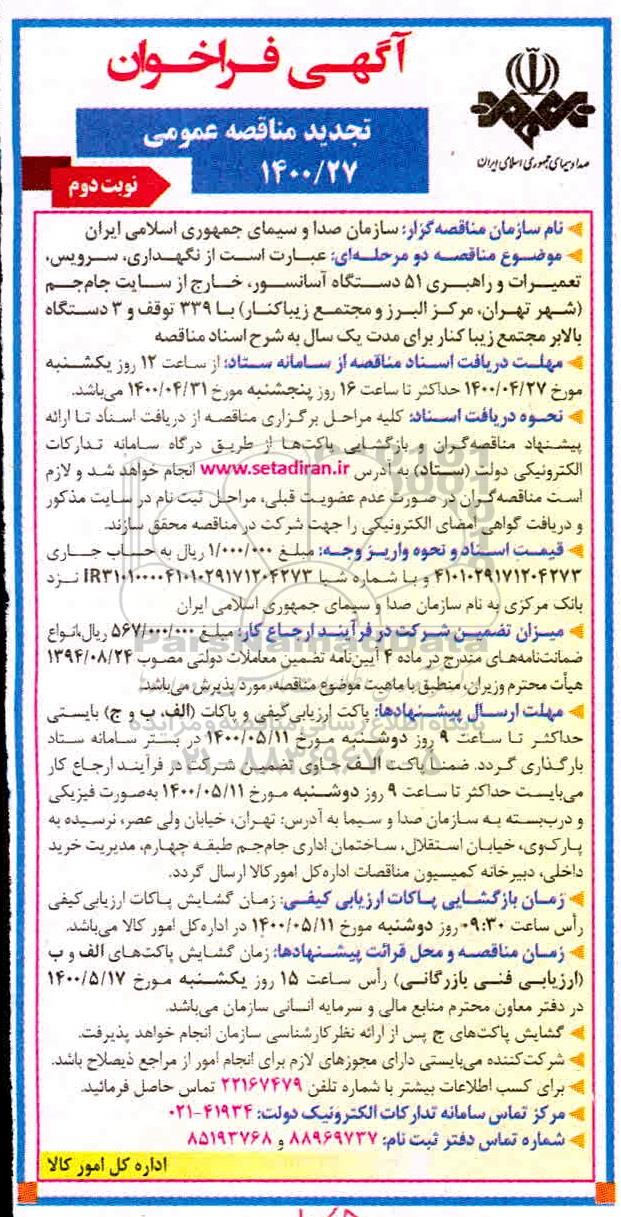 آگهی فراخوان
صدا و سیمای جمهوری اسلامی ایران
تجدید مناقصه عمومی
۱۴۰۰/۲۷
نوبت دوم
نام سازمان مناقصه‌گزار: سازمان صدا و سیمای جمهوری اسلامی ایران
موضوع مناقصه دو مرحله‌ای: عبارت است از نگهداری، سرویس،
تعمیرات و راهبری ۵۱ دستگاه آسانسور، خارج از سایت جام‌جم
(شهر تهران، مرکز البرز و مجتمع زیباکنار) با ۳۳۹ توقف و ۳ دستگاه
بالابر مجتمع زیبا کنار برای مدت یک سال به شرح اسناد مناقصه
مهلت دریافت اسناد مناقصه از سامانه ستاد: از ساعت ۱۲ روز یکشنبه
مورخ ۱۴۰۰/۰۴/۲۷ حداکثر تا ساعت ۱۶ روز پنجشنبه مورخ ۱۴۰۰/۰۴/۳۱ می‌باشد.
نحوه دریافت اسناد: کلیه مراحل برگزاری مناقصه از دریافت اسناد تا ارائه
پیشنهاد مناقصه‌گران و بازگشایی پاکت‌ها از طریق درگاه سامانه تدارکات
الکترونیکی دولت (ستاد) به آدرس www.setadiran.ir انجام خواهد شد و لازم
است مناقصه‌گران در صورت عدم عضویت قبلی، مراحل ثبت نام در سایت مذکور
و دریافت گواهی امضای الکترونیکی را جهت شرکت در مناقصه محقق سازند.
قیمت اسناد و نحوه واریز وجه: مبلغ ۱/۰۰۰/۰۰۰ ریال به حساب جاری
۴۱۰۱۰۲۹۱۷۱۲۰۴۲۷۳ و با شماره شبا IR۳۱۰۱۰۰۰۰۴۱۰۱۰۲۹۱۷۱۲۰۴۲۷۳ نزد
بانک مرکزی به نام سازمان صدا و سیمای جمهوری اسلامی ایران
میزان تضمین شرکت در فرآیند ارجاع کار: مبلغ ۵۶۷/۰۰۰/۰۰۰ ریال،انواع
ضمانت‌نامه‌های مندرج در ماده ۴ آیین‌نامه تضمین معاملات دولتی مصوب ۱۳۹۴/۰۸/۲۴
هیأت محترم وزیران، منطبق با ماهیت موضوع مناقصه، مورد پذیرش می‌باشد.
مهلت ارسال پیشنهادها: پاکت ارزیابی‌کیفی و پاکات (الف، ب و ج) بایستی
حداکثر تا ساعت ۹ روز دوشنبه مورخ ۱۴۰۰/۰۵/۱۱ در بستر سامانه ستاد
بارگذاری گردد. ضمناً پاکت الف حاوی تضمین شرکت در فرآیند ارجاع کار
می‌بایست حداکثر تا ساعت ۹ روز دوشنبه مورخ ۱۴۰۰/۰۵/۱۱ به‌صورت فیزیکی
و درب‌بسته به سازمان صدا و سیما به آدرس: تهران، خیابان ولی عصر، نرسیده به
پارک‌وی، خیابان استقلال، ساختمان اداری جام‌جم طبقه چهارم، مدیریت خرید
داخلی، دبیرخانه کمیسیون مناقصات اداره‌کل امور کالا ارسال گردد.
زمان بازگشایی پاکات ارزیابی کیفی: زمان گشایش پاکات ارزیابی‌کیفی
رأس ساعت ۰۹:۳۰ روز دوشنبه مورخ ۱۴۰۰/۰۵/۱۱ در اداره‌کل امور کالا می‌باشد.
زمان مناقصه و محل قرائت پیشنهادها: زمان گشایش پاکت‌های الف و ب
(ارزیابی فنی بازرگانی) رأس ساعت ۱۵ روز یکشنبه مورخ ۱۴۰۰/۵/۱۷
در دفتر معاون محترم منابع مالی و سرمایه انسانی سازمان می‌باشد.
گشایش پاکت‌های ج پس از ارائه نظر کارشناسی سازمان انجام خواهد پذیرفت.
شرکت‌کننده می‌بایستی دارای مجوزهای لازم برای انجام امور از مراجع ذیصلاح باشد.
برای کسب اطلاعات بیشتر با شماره تلفن ۲۲۱۶۷۴۷۹ تماس حاصل فرمائید.
مرکز تماس سامانه تدارکات الکترونیک دولت: ۴۱۹۳۴-۰۲۱
شماره تماس دفتر ثبت نام: ۸۸۹۶۹۷۳۷ و ۸۵۱۹۳۷۶۸
اداره کل امور کالا
ParsNamadData
پایگاه اطلاع رسانی مناقصه و مزایده
۰۲۱-۸۸۳۴۹۶۷۰-۵